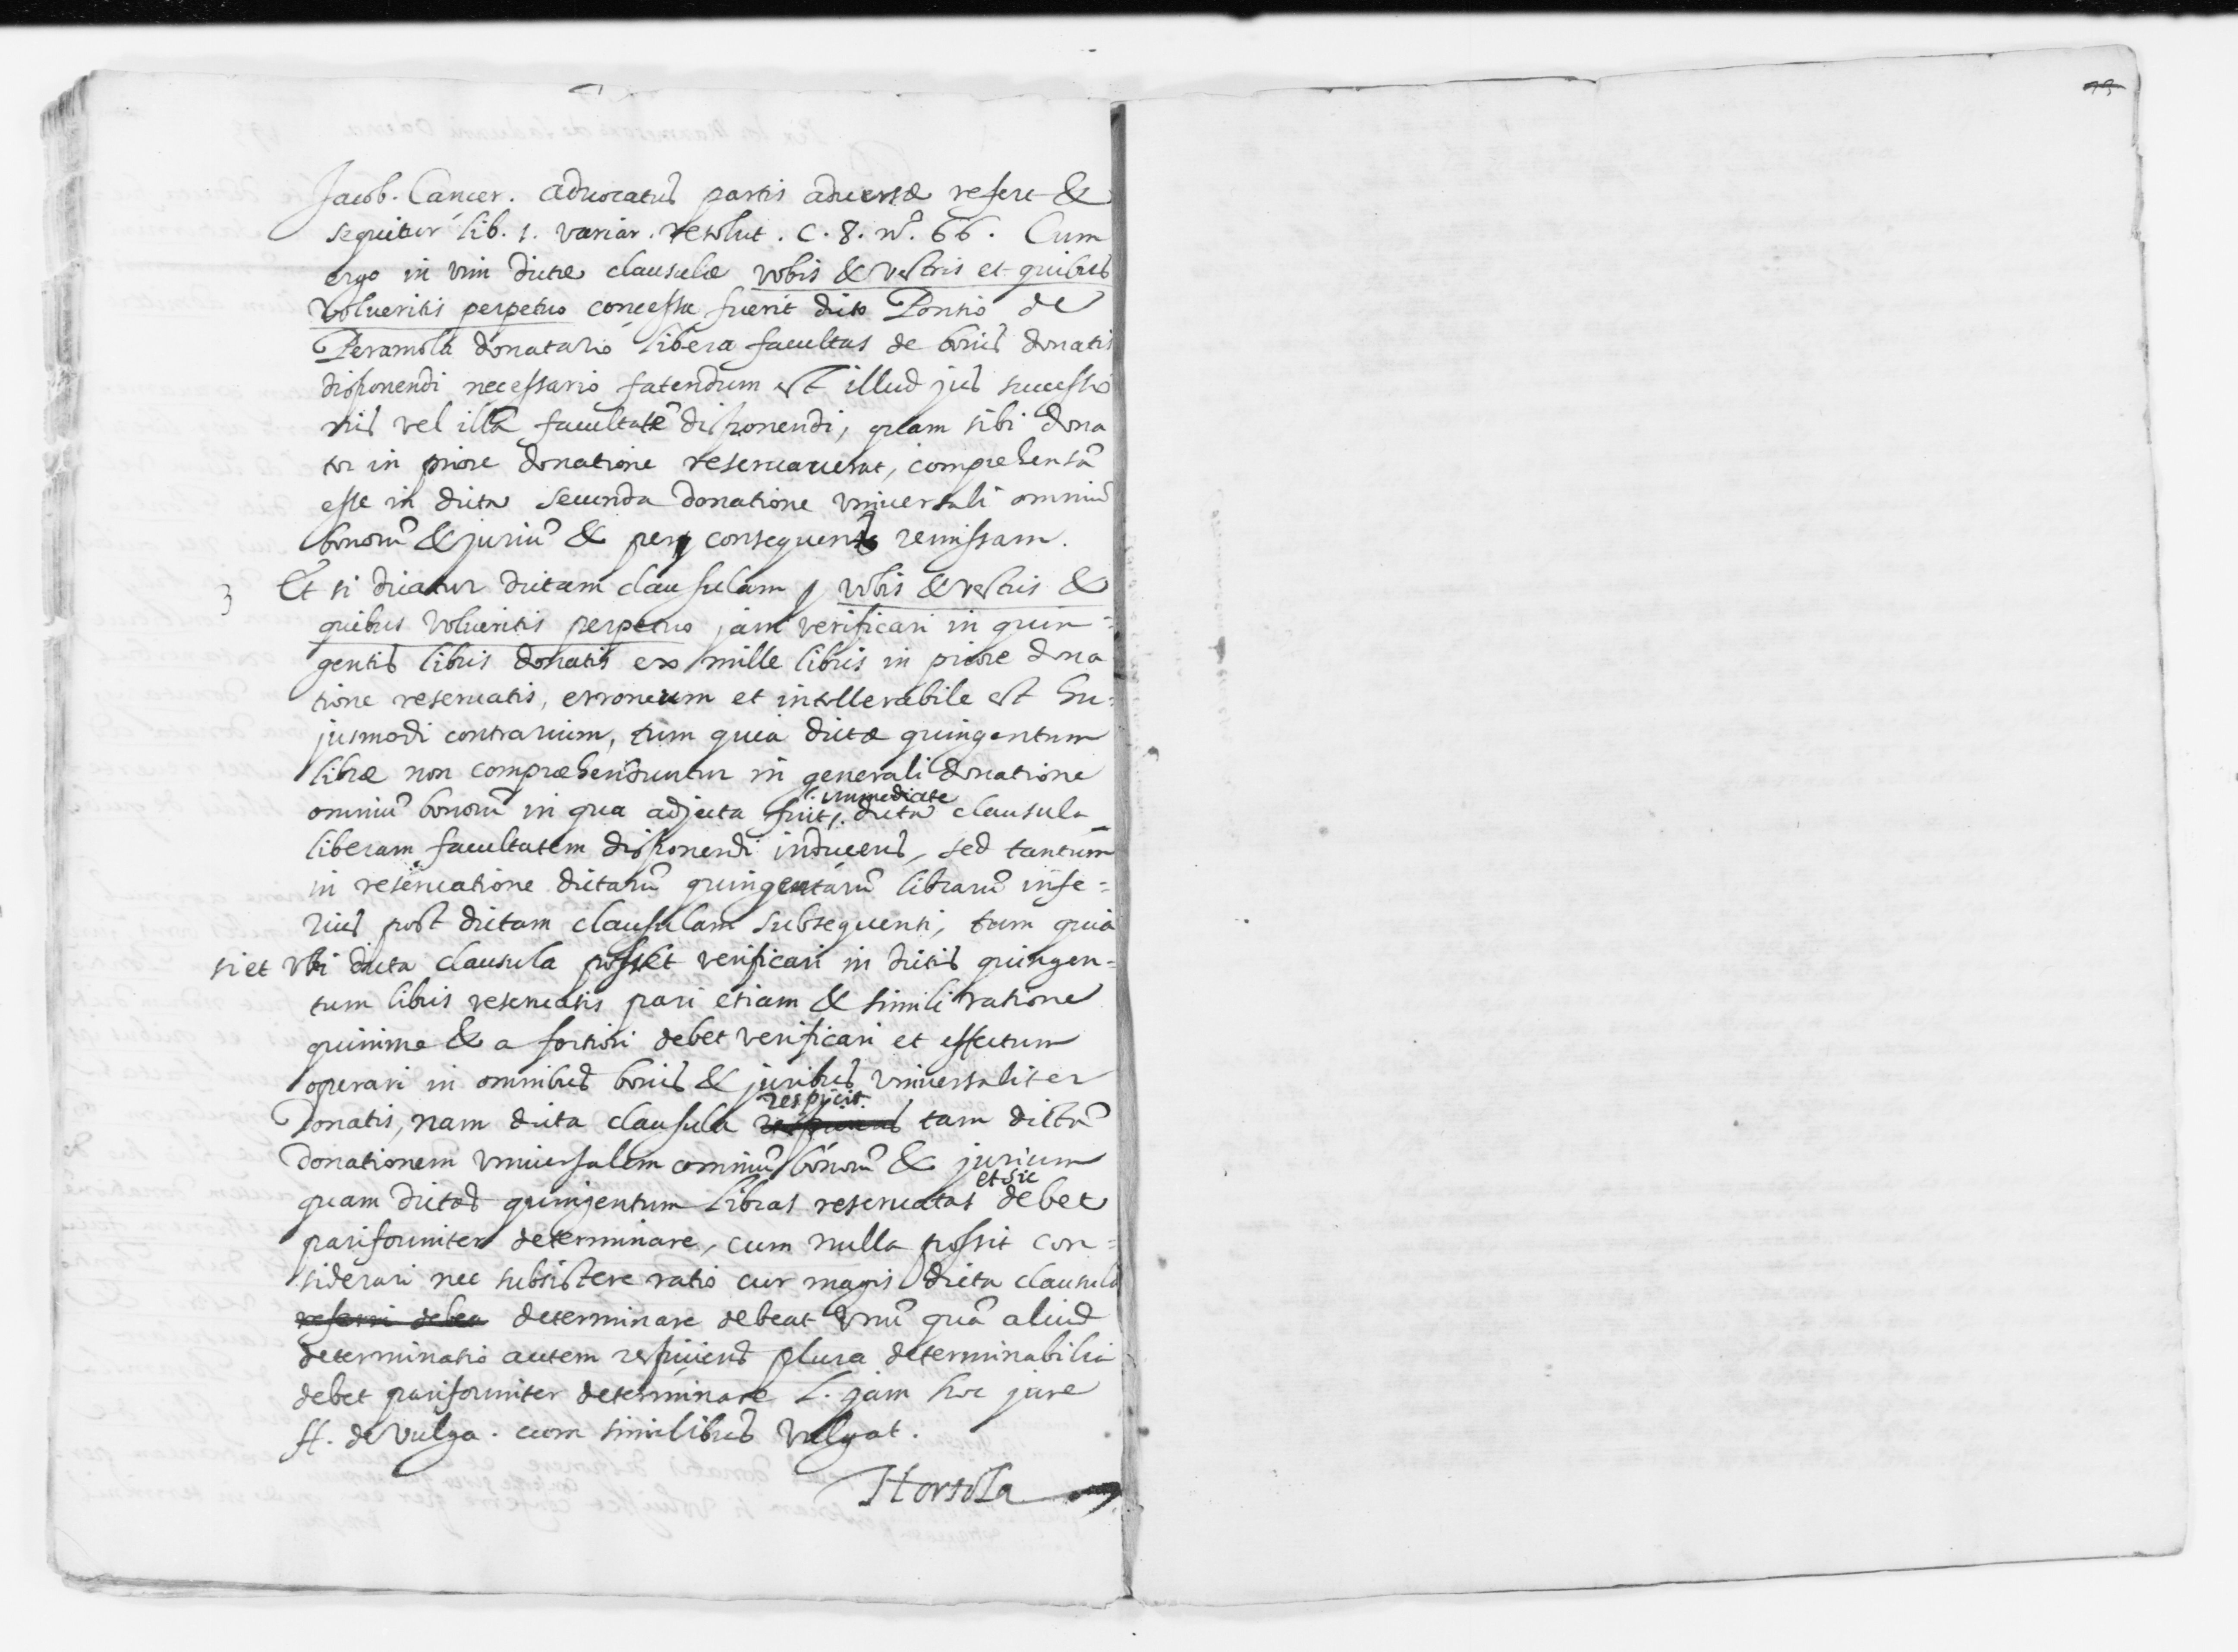 Jacob. Cancer. advocatus partis adversæ refert &
sequitur lib. 1. variar. resolut. c. 8. nº. 66. Cum
ergo in vim dictæ clausulæ vobis & vestris et quibus
volueritis perpetuo concessa fuerit dicto Pontio de
Peramola donatario libera facultas de bonis donatis
disponendi necessario fatendum est illud jus successio
nis vel illã facultatẽ disponendi, quam sibi dona
tor in priore donatione reservaverat, comprehensã
esse in dicta secunda donatione universali omniũ
bonorũ & juriũ & per consequens remissam.
3 Et si dicatur dictam clausulam vobis & vestris &
quibus volueritis perpetuo jam verificari in quin=
gentis libris donatis ex mille libris in priore dona
tione reservatis, erroneum et intollerabile est hu=
jusmodi contrarium, tum quia dictæ quingentum
libræ non compræhenduntur in generali donatione
immediate
omniũ bonorũ in qua adjecta fuit dicta clausula
liberam facultatem disponendi inducens, sed tantum
in reservatione dictarũ quingentarũ librarũ infe=
rius post dictam clausulam subsequenti, tum quia
si et ubi dicta clausula posset verificari in dictis quingen=
tum libris reservatis pari etiam & simili ratione
quinime & a fortiori debet verificari et effectum
operari in omnibus bonis & juribus universaliter
respicit
Donatis, nam dicta clausula tam dictã
donationem universalem omniũ bonorũ & jurium
et sic
quam dictas quingentum libras reservatas debet
pariformiter determinare, cum nulla possit con=
siderari nec subsistere ratio cur magis dicta clausula
referri debea determinare debeat unũ quã aliud
determinatio autem respiciens plura determinabilia
debet pariformiter determinare l. jam hoc jure
ff. de vulga. cum similibus vulgat.
Hortola